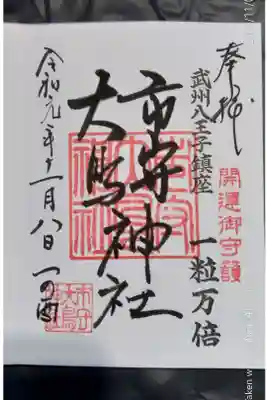 奉拝
武州八王子鎮座
開運御守護
一粒万倍
市守神社
大鳥
令和元年十一月八日 一の酉